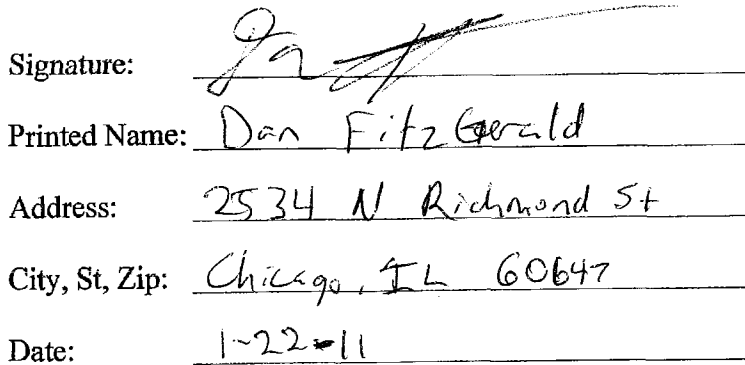 Signature:
Printed Name: Dan FitzGerald
Address: 2534 N Richmond St
City, St, Zip: Chicago, IL 60647
Date: 1-22-11